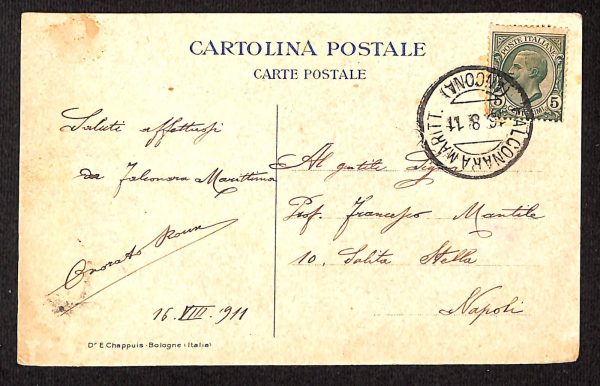 CARTOLINA POSTALE
CARTE POSTALE
POSTE ITALIANE
5
FALCONARA MARITT.
(ANCONA)
16.8.11
Saluti affettuosi
da Falconara Marittima
Onorato Roux
16. VIII. 911
Al gentile Sig.
Prof. Francesco Mantile
10. Salita Stella
Napoli
Dr E Chappuis - Bologne (Italia)